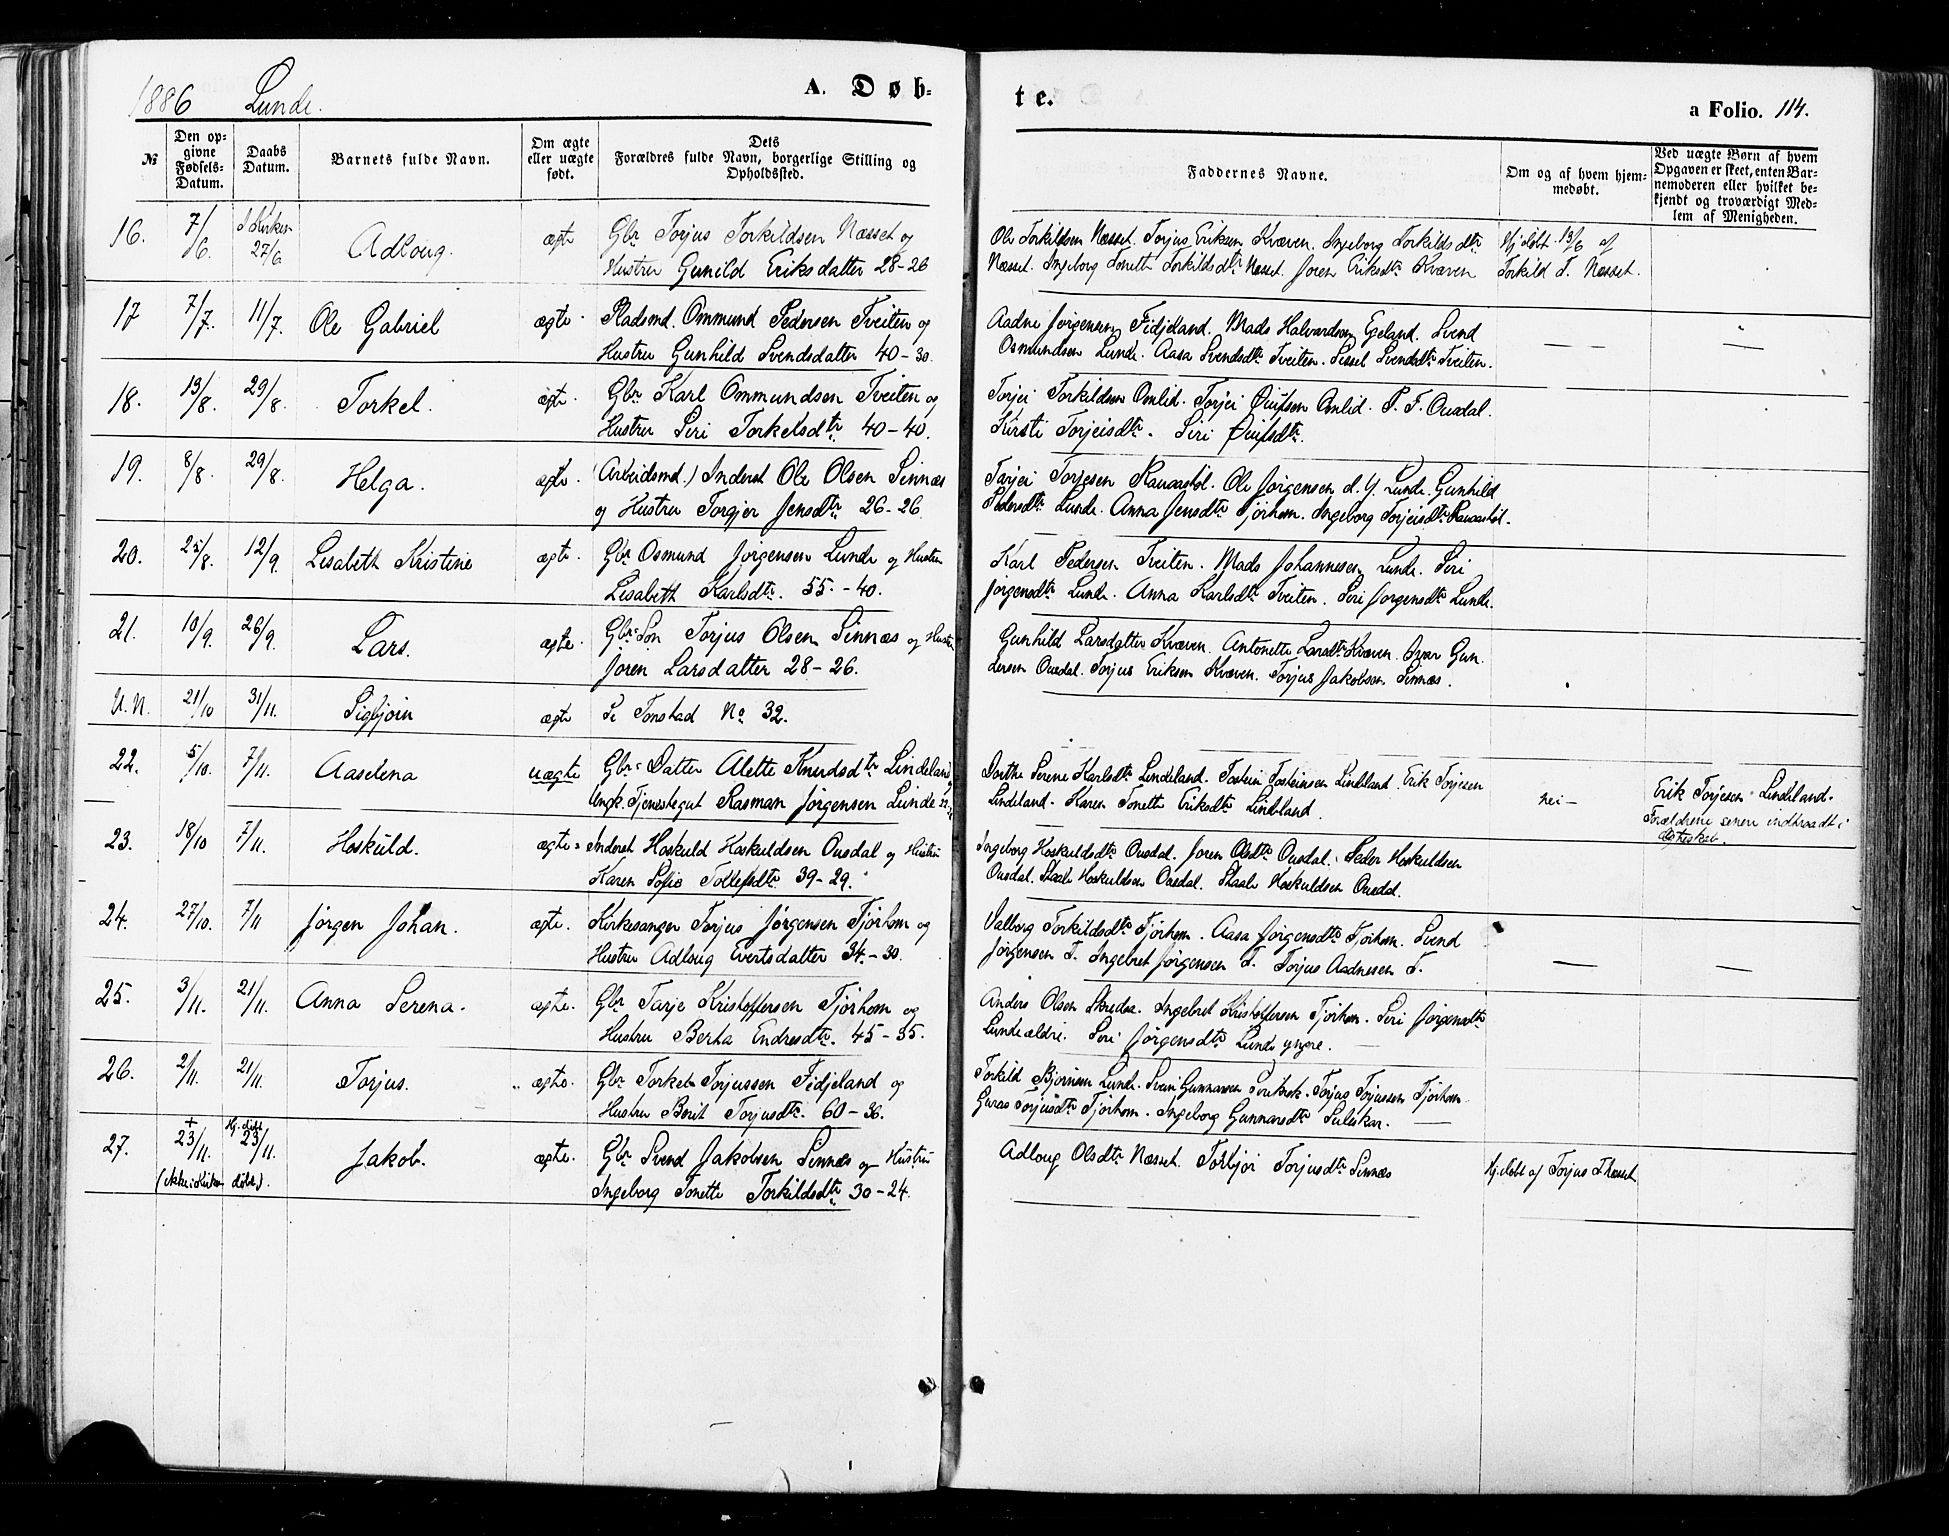 1886 Lunde.
A. Døb-
te.
a Folio. 114.
№
Den op-
givne
Fødsels-
Datum.
Daabs
Datum.
Barnets fulde Navn.
Om ægte
eller uægte
født.
Dets
Forældres fulde Navn, borgerlige Stilling og
Opholdssted.
Faddernes Navne.
Om og af hvem hjem-
medøbt.
Ved uægte Børn af hvem
Opgaven er skeet, enten Bar-
nemoderen eller hvilket be-
kjendt og troværdigt Med-
lem af Menigheden.
16. 7/6. I Kirken 27/6. Adloug. ægte Gbr Torjus Torkildsen Næsset og
Hustru Gunild Eriksdatter 28-26
Ole Torkildsen Næsset. Torjus Eriksen Kvæven. Ingeborg Torkildsdtr
Næsset. Ingeborg Tonette Torkildsdtr Næsset. Joren Eriksdtr Kvæven
Hj.døbt 13/6 af
Torkild T. Næsset.
17 7/7. 11/7. Ole Gabriel ægte. Pladsmd. Ommund Pedersen Tveiten og
Hustru Gunhild Svendsdatter 40-30.
Aadne Jørgensen Fidjeland. Mads Halvardsen Egeland. Svend
Osmundsen Lunde. Aasa Svendsdtr Tveiten. Sissel Svendsdtr Tveiten.
18. 13/8. 29/8. Torkel. ægte. Gbr Karl Ommundsen Tveiten og
Hustru Seri Torkelsdtr 40-40.
Torjei Torkildsen Omlid. Torjei Omlid. P. T. Ousdal.
Kirsti Torjeisdtr. Siri
19. 8/8. 29/8. Helga. ægte. (Arbeidsmd.) Inderst Ole Olsen Sinnæs
og Hustru Torgjer Jensdtr 26-26.
Tarjei Torjesen Ole Jørgensen d. Y. Lunde. Gunhild
Pedersdtr Lunde. Anna Jensdtr Tjorhom. Ingeborg Torjeisdtr
20. 25/8. 12/9. Lisabeth Kristine ægte. Gbr Osmund Jørgensen Lunde og Hustru
Lisabeth Karlsdtr. 55.-40.
Karl Pedersen Tveiten. Mads Johannesen Lunde. Siri
Jørgensdtr Lunde. Anna Karlsdtr Tveiten. Seri Jorgensdtr Lunde.
21. 10/9. 26/9. Lars. ægte. Gbr. Søn Torjus Olsen Sinnæs og Hustru
Joren Larsdatter 28-26.
Gunhild Larsdatter Kvæven. Antonette Larsdtr Kvæven. Ivar Gun
dersen Ousdal. Torjus Eriksen Kvæven. Torjus Jakobsen Sinnæs.
U.N. 21/10 31/11. Sigbjørn ægte Se Tonstad No 32.
22. 5/10. 7/11. Aaselena uægte Gbr. Datter Alette Knudsdtr Lindeland
Ungk. Tjenestegut Rasman Jørgensen Lunde
Dorthe Serene Karlsdtr Lindeland. Tostein Tosteinsen Lindeland. Erik Torjesen
Lindeland. Karen Tonette Eriksdtr Lindeland.
nei-
Erik Torjesen Lindeland.
Forældrene senere indtraadt i
ægteskab.
23. 18/10 7/11. Hoskuld. ægte. Inderst Hoskuld Hoskuldsen Ousdal og Hustru
Karen Sofie Tollefsdtr 39-29.
Ingeborg Hoskuldsdtr Ousdal. Joren Olsdtr Ousdal. Peder Hoskuldsen
Ousdal. Staale Hoskuldsen Ousdal. Staale Hoskuldsen Ousdal.
24. 27/10. 7/11 Jørgen Johan. ægte. Kirkesanger Torjus Jørgensen Tjørhom og
Hustru Adloug Evertsdatter 34.-30.
Valborg Torkildsdtr Tjørhom. Aasa Jørgensdtr Tjørhom. Svend
Jørgensen T. Ingebret Jørgensen T. Torjus Aadnesen T.
25. 3/11. 21/11. Anna Serena. ægte. Gbr Tarje Kristoffersen Tjørhom og
Hustru Berta Endresdtr. 45-35.
Anders Olsen Skreder. Ingebret Kristoffersen Tjørhom. Seri Jørgensdtr
Lunde ældre. Seri Jørgensdtr Lunde yngre.
26. 2/11. 21/11. Torjus. ægte. Gbr Torkel Torjussen Fidjeland og
Hustru Berit Torjusdtr. 60-36.
Torkild Bjørnsen Lunde. Svein Gunnarsen Torjus Torjussen Tjørhom
Guras Torjusdtr Tjørhom. Ingeborg Gunnarsdtr Suleskar.
27. + 23/11. Hj.døbt 23/11. Jakob. ægte. Gbr Svend Jakobsen Sinnæs og Hustru
(ikke i Kirken døbt). Ingeborg Tonette Torkildsdtr 30-24.
Adloug Olsdtr Næsset. Torbjør Torjusdtr Sinnæs
Hj.døbt af Torjus T Næsset